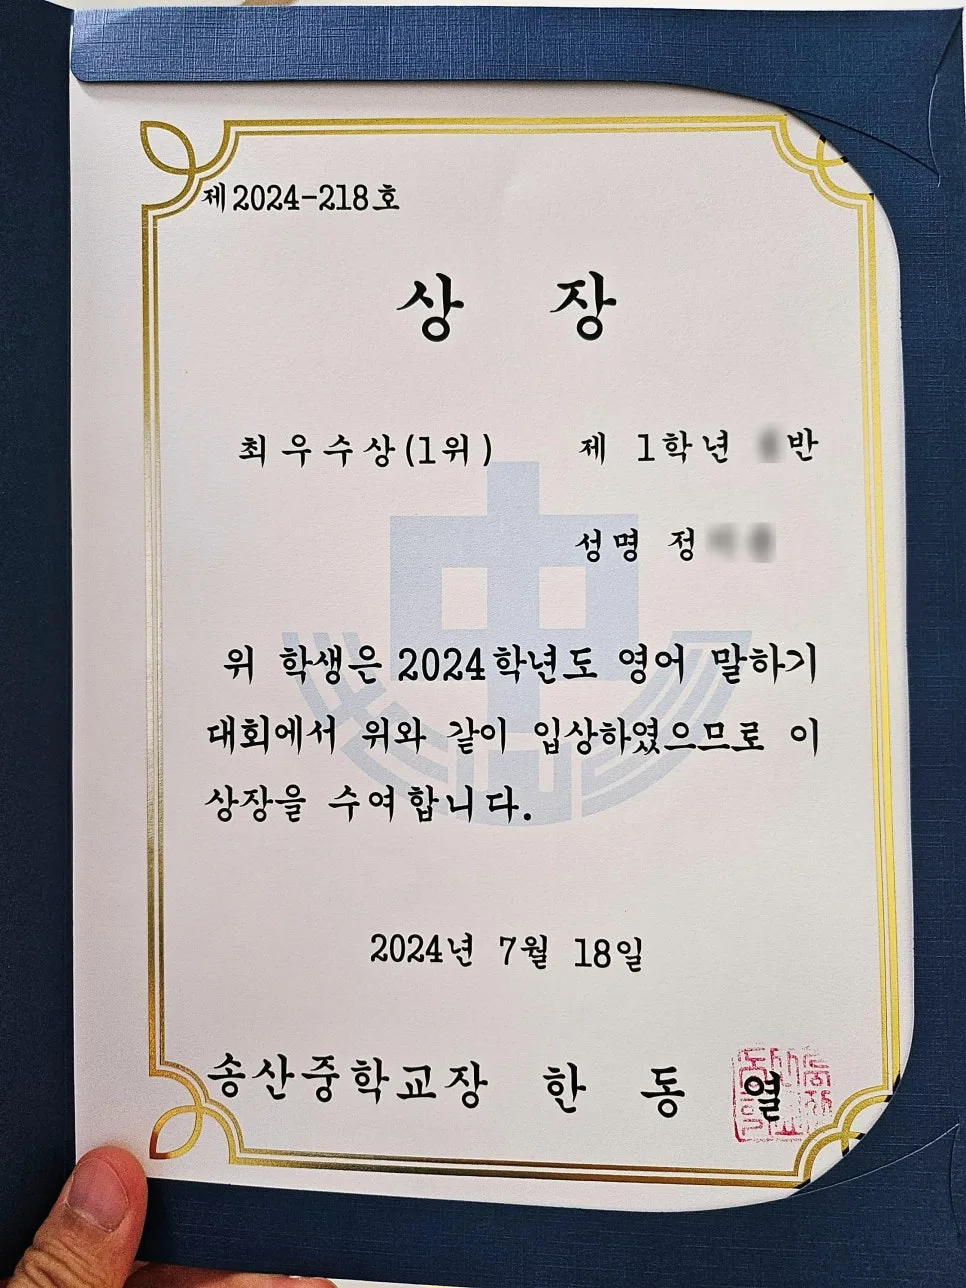 제2024-218호
상 장
최우수상(1위) 제 1학년 반
성명 정
위 학생은 2024학년도 영어 말하기
대회에서 위와 같이 입상하였으므로 이
상장을 수여합니다.
2024년 7월 18일
송산중학교장 한 동 열